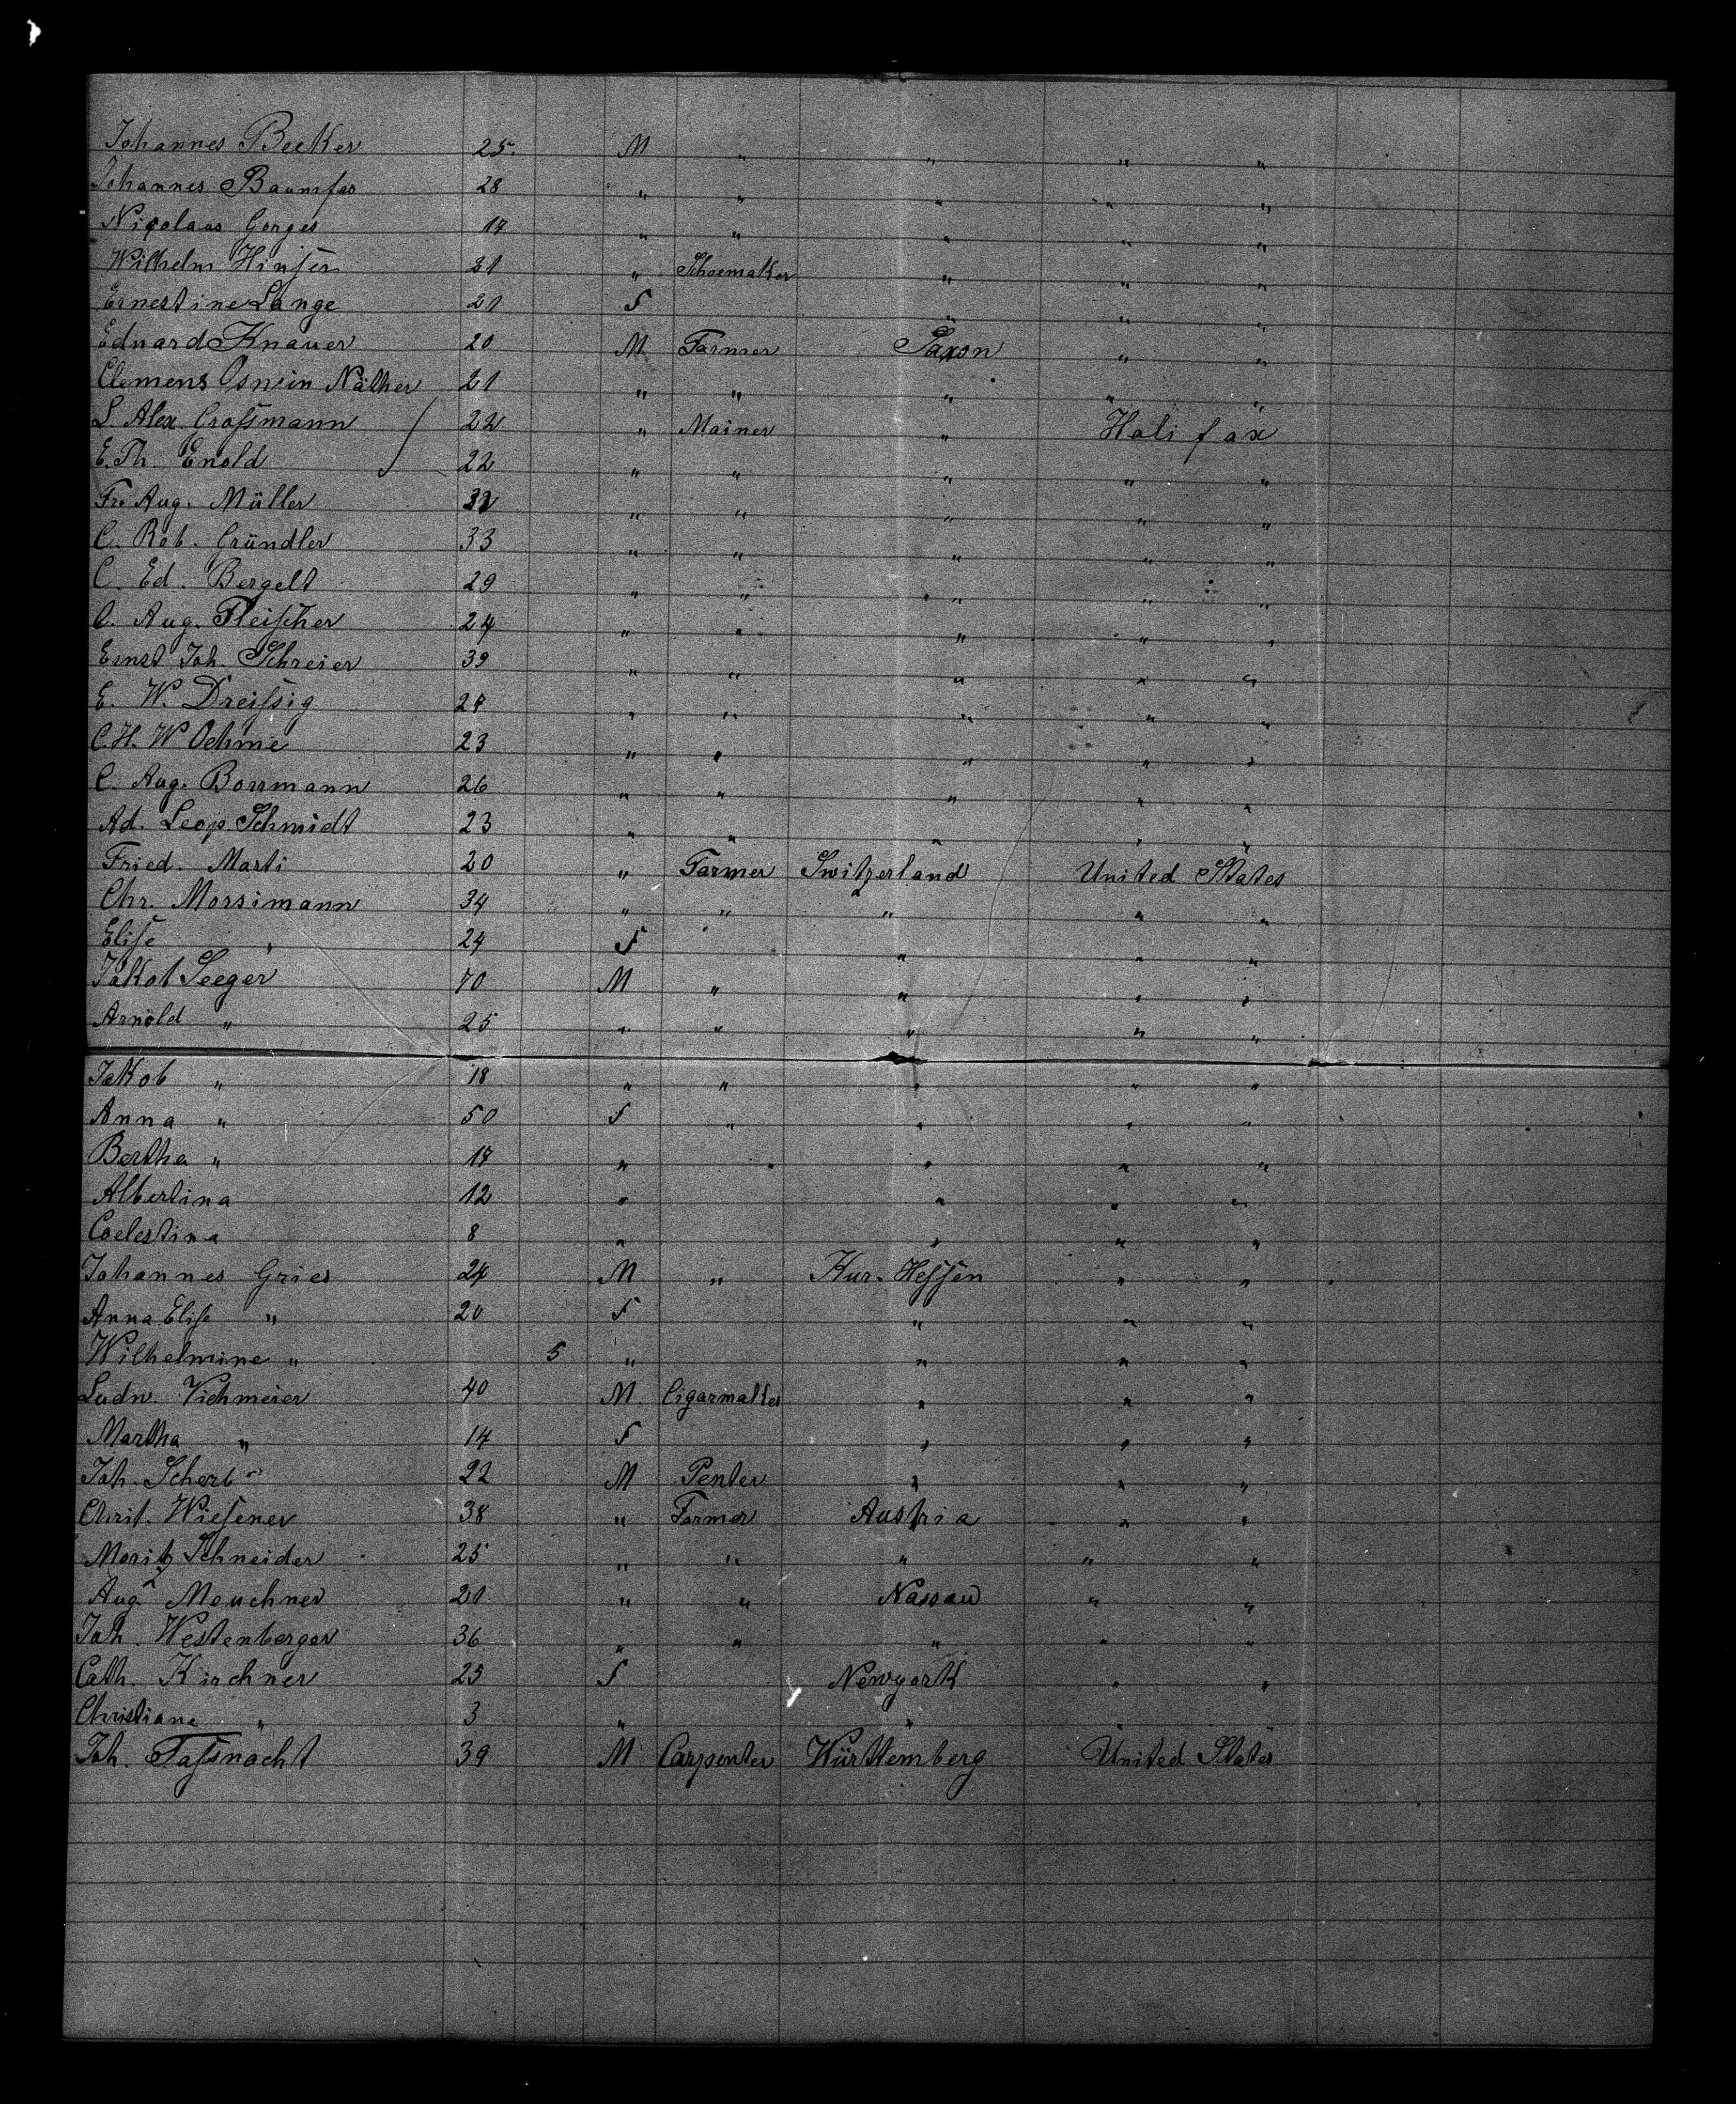 Johannes Becker 25. M " " " "
Johannes Baumfas 28 " " " " "
Nicolaas Gorges 17 " " " " "
Wilhelm Hinser 31 " Schoemaker " " "
Ernestine Lange 21 f " " "
Eduard Knauer 20 M Farmer Saxon " "
Clemens Oswin Näther 21 " " " " "
L. Alex. Grossmann 22 " Mainer " Halifax
E. Th. Enold 22 " " " " "
Fr. Aug. Müller 32 " " " " "
C. Rob. Gründler 33 " " " " "
C. Ed. Bergelt 29 " " " " "
C. Aug. Fleischer 24 " " " " "
Ernst Joh. Schreier 39 " " " " "
E. W. Dreissig 27 " " " " "
C. H. W Oehme 23 " " " " "
C. Aug. Borrmann 26 " " " " "
Ad. Leop. Schmidt 23 " " " " "
Fried. Marti 20 " Farmer Switzerland United States
Chr. Morsimann 34 " " " " "
Elise " 24 f " " "
Jakob Seeger 70 M " " " "
Arnold " 25 " " " " "
Jakob " 18 " " " " "
Anna " 50 f " " " "
Bertha " 17 " " " " "
Albertina 12 " " " "
Coelestina 8 " " " "
Johannes Gries 24 M " Kur-Hessen " "
Anna Elise " 20 f " " "
Wilhelmine " 5 " " " "
Ludw. Viehmeier 40 M. Cigarmaker " " "
Martha " 14 f " " "
Joh. Scherb 22 M Penter " " "
Christ. Wiesener 38 " Farmer Austria " "
Moritz Schneider 25 " " " " "
Aug. Meuchner 21 " " Nassau " "
Joh. Westenberger 36 " " " " "
Cath. Kirchner 25 f Newyork " "
Christiane " 3 " " " "
Joh. Fassnacht 39 M Carpenter Württemberg United States